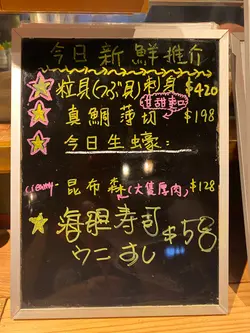 今日新鮮推介
粒貝(つぶ貝)刺身 $420
甘甜爽口
真鯛薄切 $198
今日生蠔:
creamy 昆布森(大隻厚肉) $128
海胆寿司 $58
ウニすし